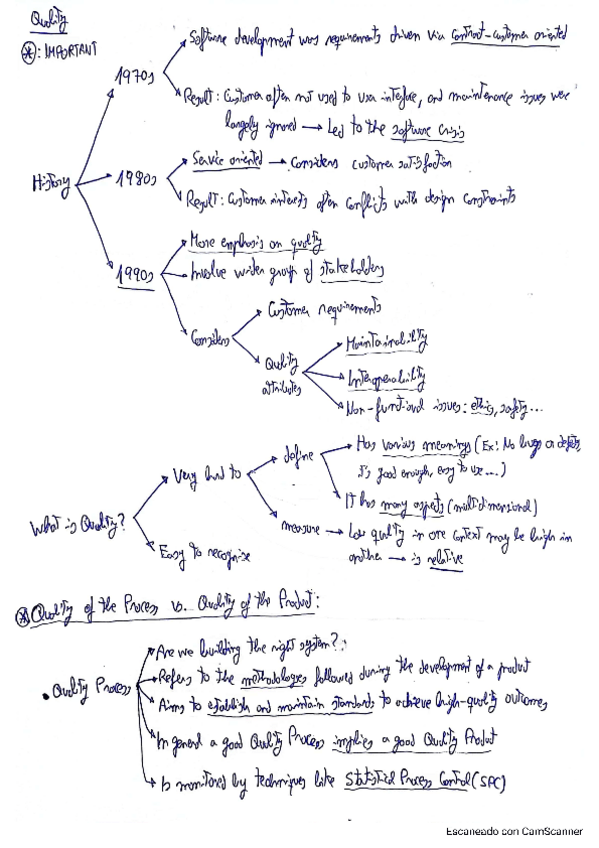 Quality
*: IMPORTANT
History
1970s
Software development was requirements driven via contract-customer oriented
Result: Customer often not used to user interface, and maintenance issues were
largely ignored → Led to the software crisis
1980s
Service oriented → Considers customer satisfaction
Result: Customer interests often conflicts with design constraints
1990s
More emphasis on quality
Involve wider group of stakeholders
Considers
Customer requirements
Quality
attributes
Maintainability
Interoperability
Non-functional issues: ethics, safety...
What is Quality?
Very hard to
define
Has various meanings (Ex: No bugs or defects,
it's good enough, easy to use...)
It has many aspects (multidimensional)
measure → Low quality in one context may be high in
another → is relative
Easy to recognise
* Quality of the Process vs. Quality of the Product:
• Quality Process
Are we building the right system?
Refers to the methodologies followed during the development of a product
Aims to establish and maintain standards to achieve high-quality outcomes
In general a good Quality Process implies a good Quality Product
Is monitored by techniques like Statistical Process Control (SPC)
Escaneado con CamScanner